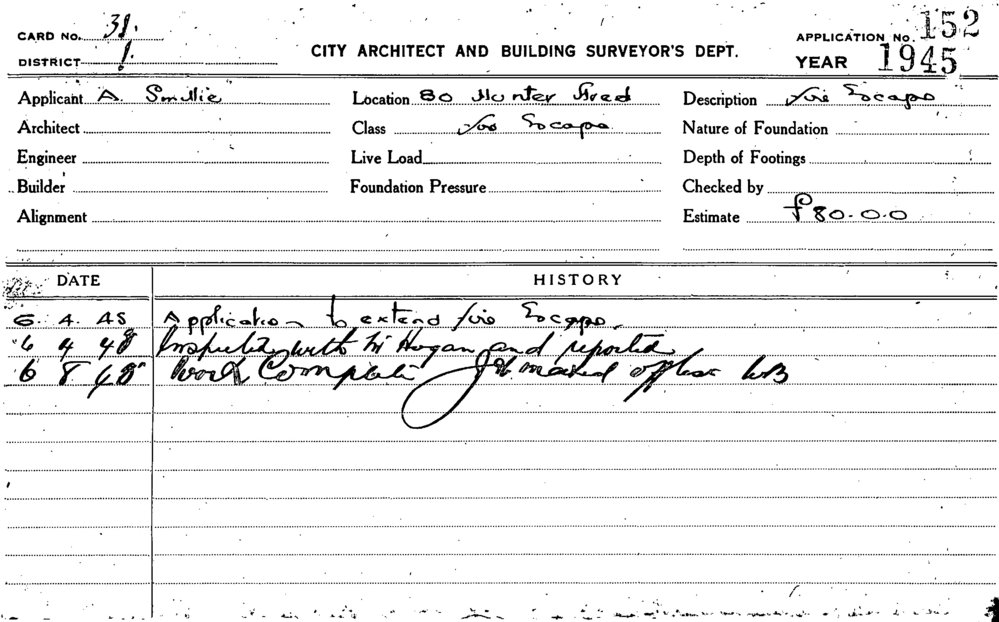 CARD No. 31.
DISTRICT 1.
CITY ARCHITECT AND BUILDING SURVEYOR'S DEPT.
APPLICATION No. 152
YEAR 1945
Applicant A. Smillie Location 80 Hunter Street Description Fire Escape
Architect Class Fire Escape Nature of Foundation
Engineer Live Load Depth of Footings
Builder Foundation Pressure Checked by
Alignment Estimate £80.0.0
DATE HISTORY
6. 4. 45 Application to extend Fire Escape.
6 4 48 Inspected with Mr Hogan and reported
6 8 48 Work Complete Job marked off WB